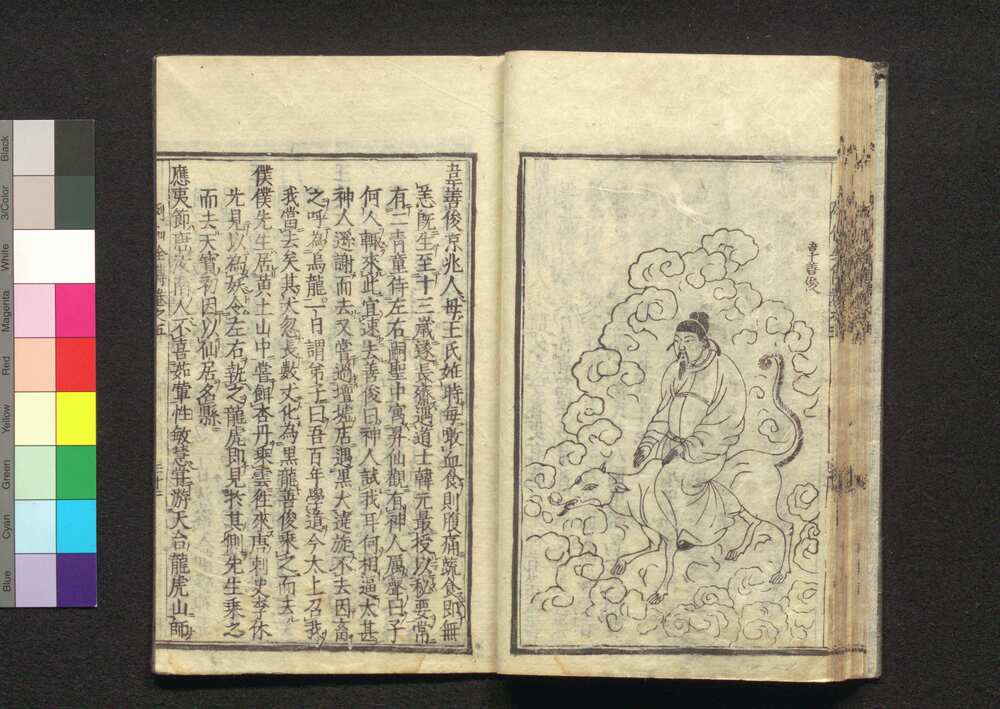 韋善俊
韋善俊京兆人母王氏姙時每噉血食則腹痛蔬食即無
恙既生至十三歲遂長齋遇道士韓元最授以秘要常
有二青童侍左右嗣聖中寓昇仙觀有神人厲聲曰子
何人輙來此宜速去善俊曰神人試我耳何相逼太甚
神人遜謝而去又嘗過壇墟店遇黑犬遶旋不去因畜
之呼為烏龍一日謂弟子曰吾百年學道今太上召我
我當去矣其犬忽長數丈化為黑龍善俊乘之而去
僕僕先生居黄土山中嘗餌杏丹乘雲往來唐刺史李休
光見以為妖令左右執之龍虎即見於其側先生乘之
而去天寶初因以仙居名縣
應夷節唐汝南人不喜茹葷性敏慧甞游天台龍虎山師
Black
3/Color
White
Magenta
Red
Yellow
Green
Cyan
Blue